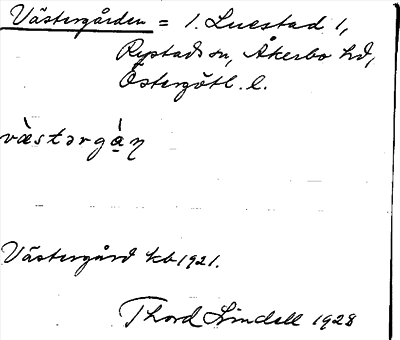 Västergården = 1. Luestad 1,
Rystads sn, Åkerbo hd,
Östergötl. l.
væ̀stərgá̱ŋ
Västergård kb 1921.
Thord Lindell 1928